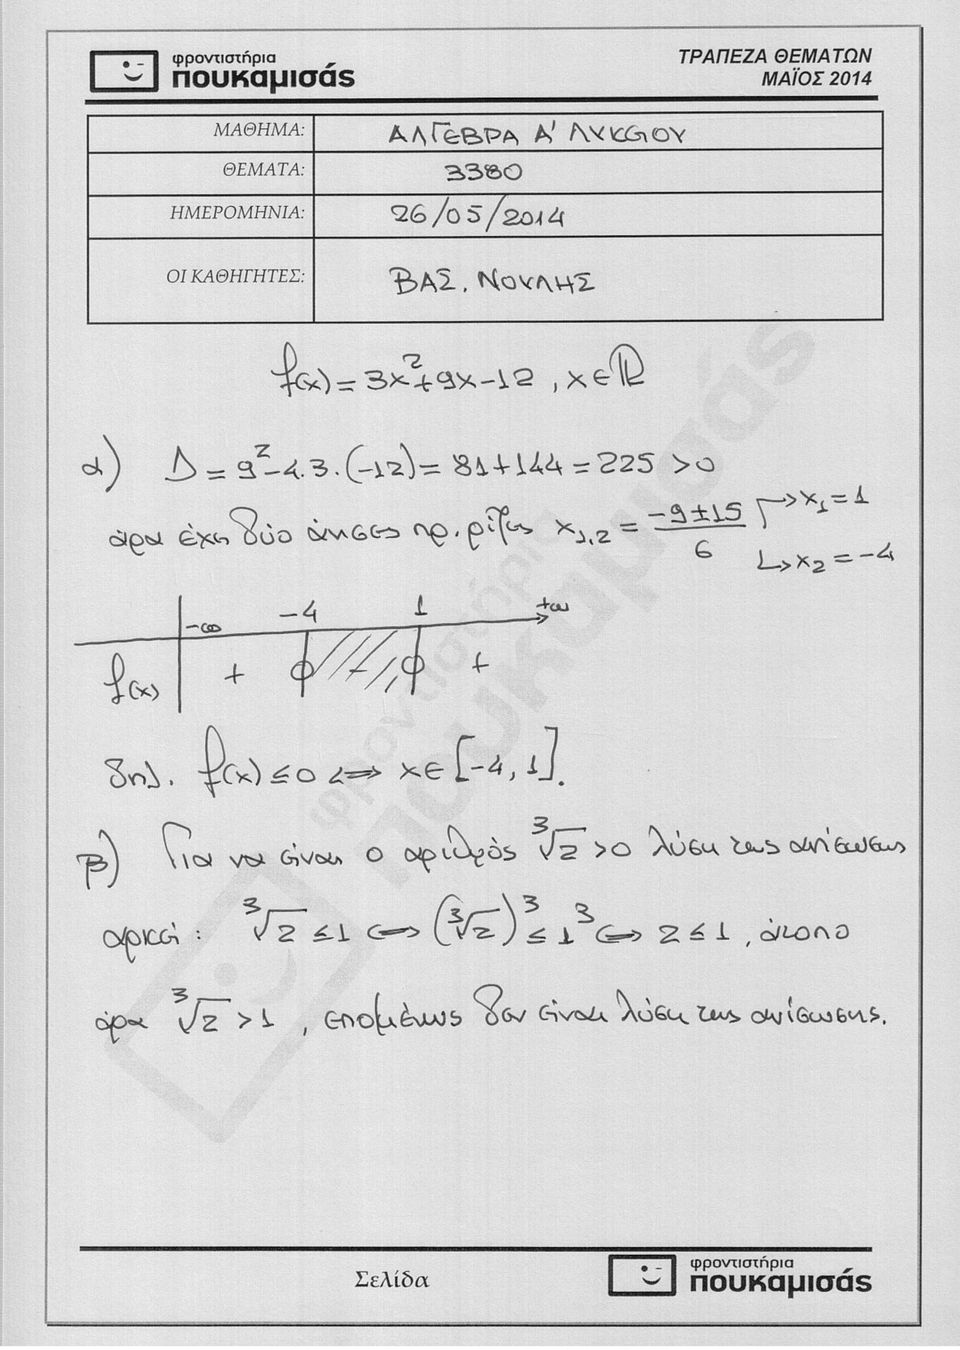 φροντιστήρια
πουκαμισάς
ΤΡΑΠΕΖΑ ΘΕΜΑΤΩΝ
ΜΑΪΟΣ 2014
ΜΑΘΗΜΑ: ΑΛΓΕΒΡΑ Α' ΛΥΚΕΙΟΥ
ΘΕΜΑΤΑ: 3380
ΗΜΕΡΟΜΗΝΙΑ: 26/05/2014
ΟΙ ΚΑΘΗΓΗΤΕΣ: ΒΑΣ. ΝΟΥΛΗΣ
f(x) = 3x²+9x-12, x∈ℝ
α) Δ = 9²-4.3.(-12) = 81+144 = 225 >0
άρα έχει δύο άνισες πρ. ρίζες x₁,₂ = (-9±15)/6 ↱ x₁=1 ↳ x₂=-4
-∞ -4 1 +∞
f(x) + φ - φ +
δηλ. f(x) ≤0 ⟺ x∈[-4,1].
β) Για να είναι ο αριθμός ³√2 >0 λύση της ανίσωσης
αρκεί: ³√2 ≤1 ⟺ (³√2)³ ≤ 1³ ⟺ 2≤1, άτοπο
άρα ³√2 >1, επομένως δεν είναι λύση της ανίσωσης.
φροντιστήρια
πουκαμισάς
Σελίδα
φροντιστήρια
πουκαμισάς